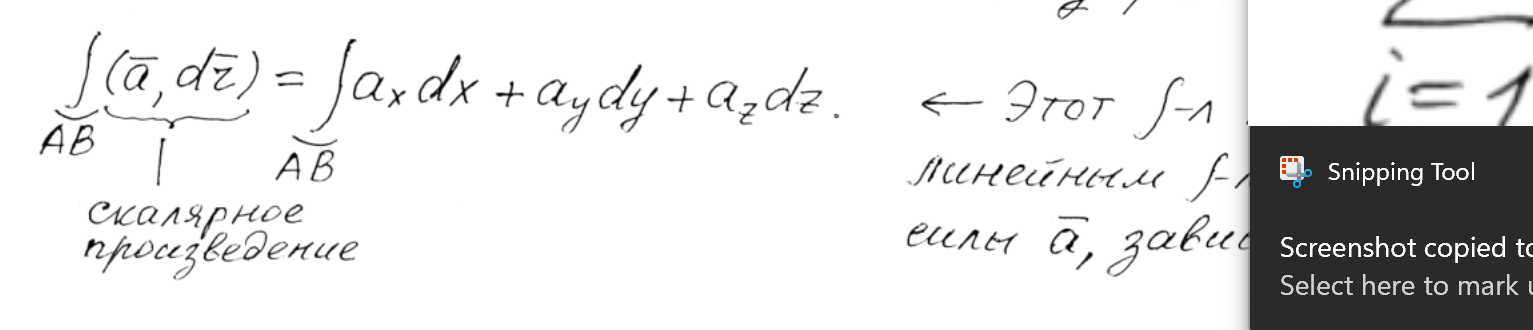 ∫(ā, dr̄) = ∫aₓdx + a_y dy + a_z dz.
AB AB
скалярное
произведение
← Этот ∫-л
линейным ∫-л
силы ā,
i=1
Snipping Tool
Screenshot copied to
Select here to mark u